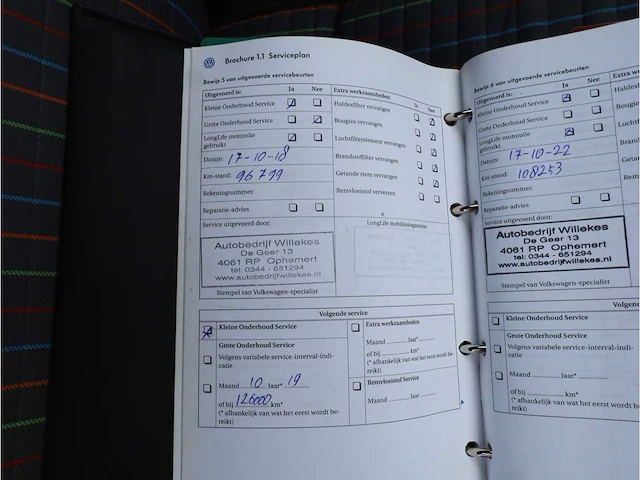 Brochure 1.1 Serviceplan
Bewijs 5 van uitgevoerde servicebeurten
Uitgevoerd is: Ja Nee
Kleine Onderhoud Service
Grote Onderhoud Service
LongLife motorolie
gebruikt
Datum: 17-10-18
Km-stand: 96799
Rekeningnummer:
Reparatie-advies
Extra werkzaamheden:
Ja Nee
Haldexfilter vervangen
Bougies vervangen
Luchtfilterelement vervangen
Brandstoffilter vervangen
Getande riem vervangen
Remvloeistof verversen
Service uitgevoerd door:
Autobedrijf Willekes
De Geer 13
4061 RP Ophemert
tel: 0344 - 651294
www.autobedrijfwillekes.nl
Stempel van Volkswagen-specialist
LongLife mobiliteitsgarantie:
Volgende service
Kleine Onderhoud Service
Grote Onderhoud Service
Volgens variabele service-interval-indi-
catie
Maand 10 Jaar* 19
of bij 126000 km*
(* afhankelijk van wat het eerst wordt be-
reikt)
Extra werkzaamheden
Maand Jaar*
of bij km*
(* afhankelijk van wat het eerst wordt
bereikt)
Remvloeistof Service
Maand Jaar
Bewijs 6 van uitgevoerde servicebeurten
Uitgevoerd is: Ja Nee
Kleine Onderhoud Service
Grote Onderhoud Service
LongLife motorolie
gebruikt
Datum: 17-10-22
Km-stand: 108253
Rekeningnummer:
Reparatie-advies
Extra werkz
Haldexfilter
Bougies verva
Luchtfilterele
Brandstoffilter
Getande riem
Remvloeistof
Service uitgevoerd door:
Autobedrijf Willekes
De Geer 13
4061 RP Ophemert
tel: 0344 - 651294
www.autobedrijfwillekes.nl
Stempel van Volkswagen-specialist
Volgend
Kleine Onderhoud Service
Grote Onderhoud Service
Volgens variabele service-interval-indi-
catie
Maand Jaar*
of bij km*
(* afhankelijk van wat het eerst wordt be-
reikt)